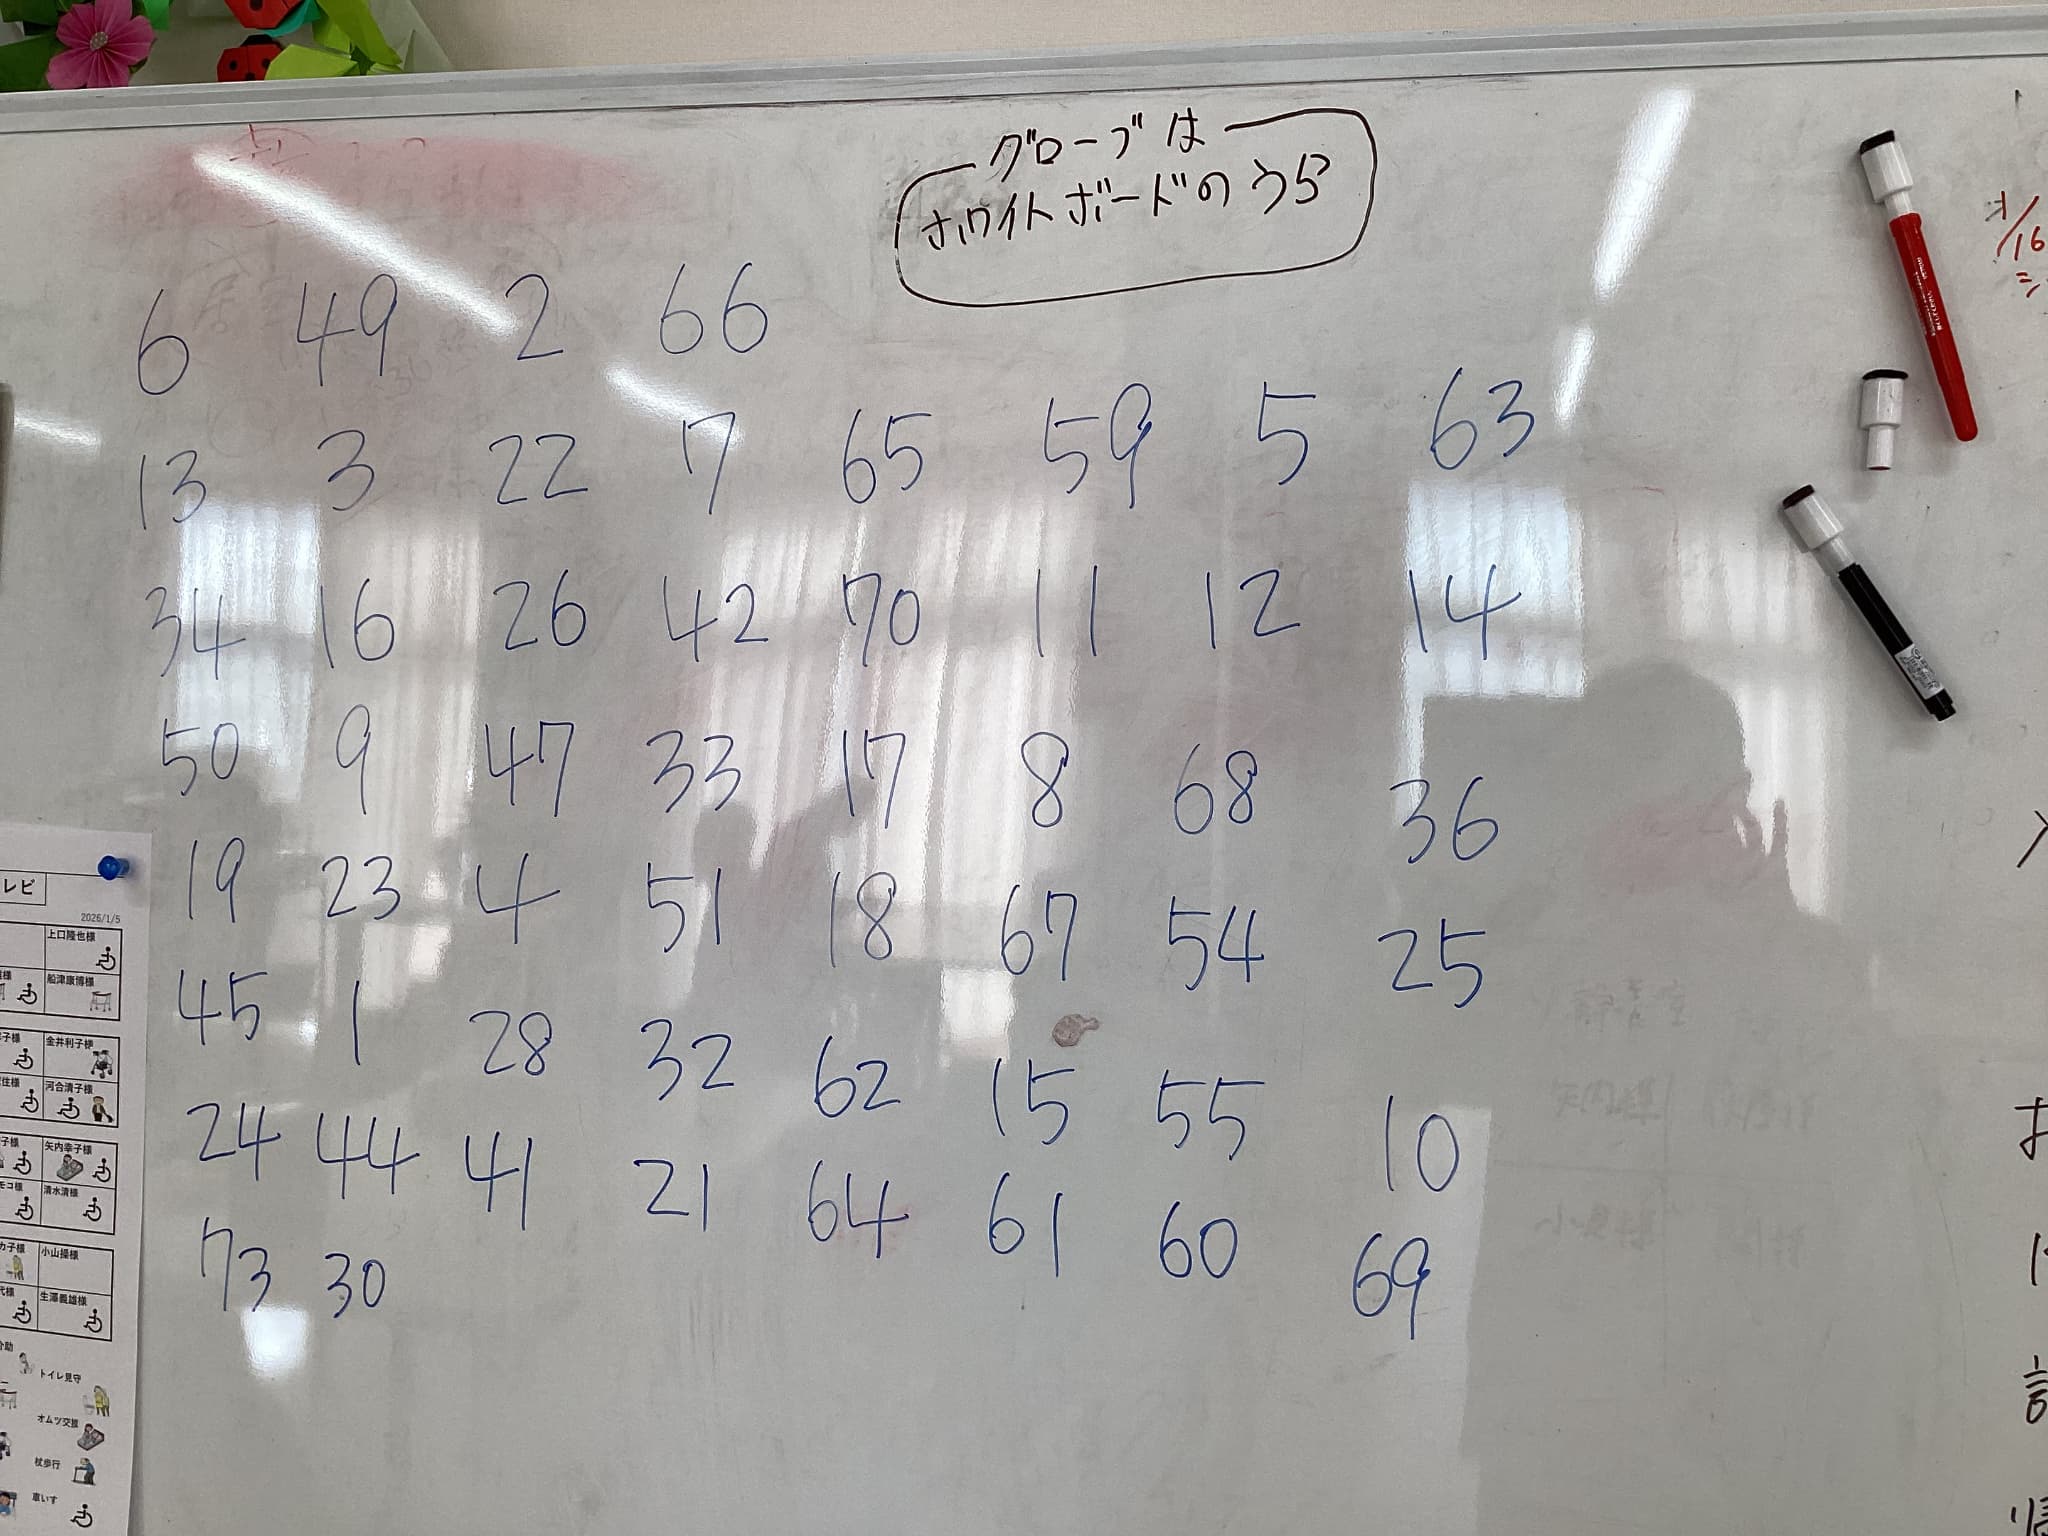 グローブは
ホワイトボードのうら
6 49 2 66
13 3 22 7 65 59 5 63
34 16 26 42 70 11 12 14
50 9 47 33 17 8 68 36
19 23 4 51 18 67 54 25
45 1 28 32 62 15 55 10
24 44 41 21 64 61 60 69
73 30
1/16
レビ
2026/1/5
上口隆也様
様 船津康博様
子様 金井利子様
住様 河合清子様
子様 矢内幸子様
モコ様 清水清様
カ子様 小山操様
代様 生澤義雄様
介助
トイレ見守
オムツ交換
杖歩行
車いす